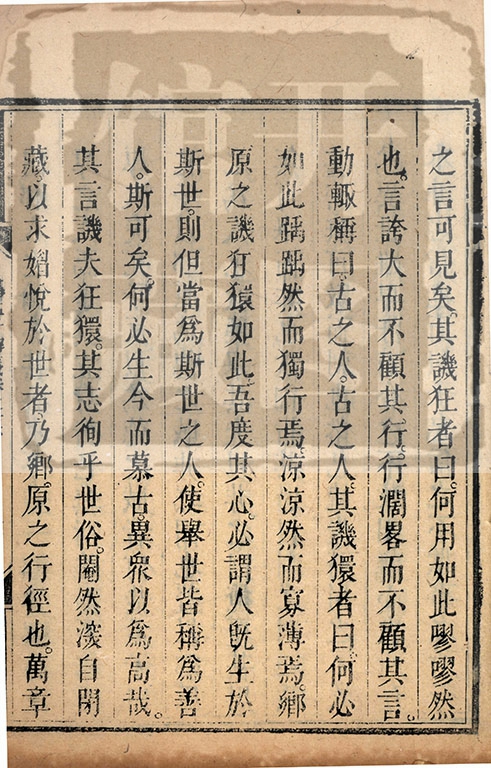 之言可見矣。其譏狂者曰。何用如此嘐嘐然
也。言誇大而不顧其行。行濶畧而不顧其言。
動輒稱曰。古之人。古之人。其譏獧者曰。何必
如此踽踽然而獨行焉。涼涼然而寡薄焉。鄉
原之譏狂獧如此。吾度其心。必謂人旣生於
斯世。則但當爲斯世之人。使舉世皆稱爲善
人。斯可矣。何必生今而慕古。異衆以爲高哉。
其言譏夫狂獧。其志徇乎世俗。閹然深自閉
藏。以求媚悅於世者。乃鄉。原之行徑也。萬章